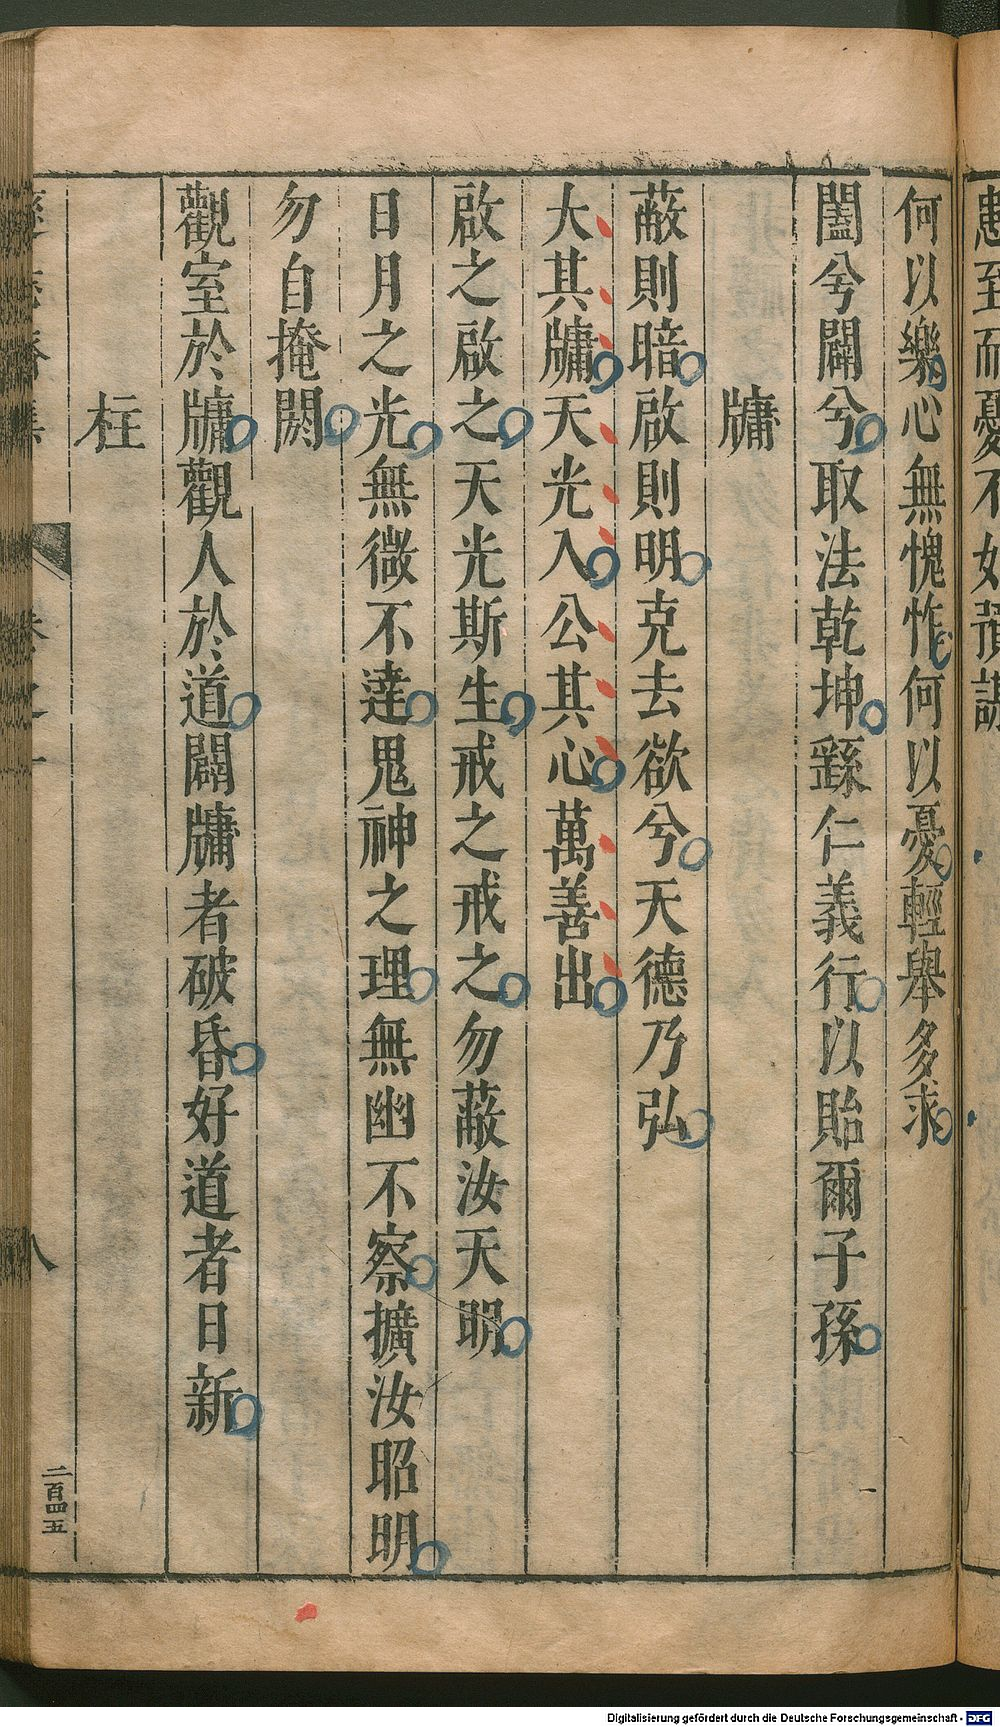 患至而憂不如預謀
何以樂心無愧怍何以憂輕舉多求
闔兮闢兮取法乾坤繇仁義行以貽爾子孫
牗
蔽則暗啟則明克去欲兮天德乃弘
大其牗天光入公其心萬善出
啟之啟之天光斯生戒之戒之勿蔽汝天明
日月之光無微不達鬼神之理無幽不察擴汝昭明
勿自掩閼
觀室於牗觀人於道闢牗者破昏好道者日新
柱
卷之十
八
二百四五
Digitalisierung gefördert durch die Deutsche Forschungsgemeinschaft - DFG